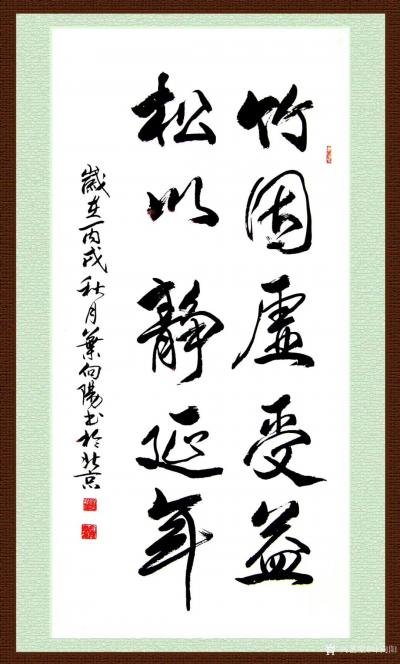 竹因虚受益
松以静延年
歲在丙戌秋月葉向陽书於北京